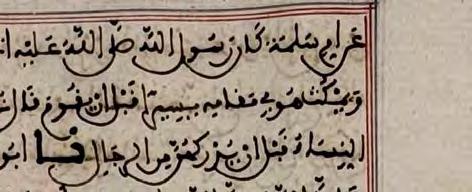 عن ام سلمة كان رسول الله صلى الله عليه
ويمكث هو في مقامه يسيرا قبل ان يقوم قال
النساء قبل ان يدركهن من الرجال نا ابو